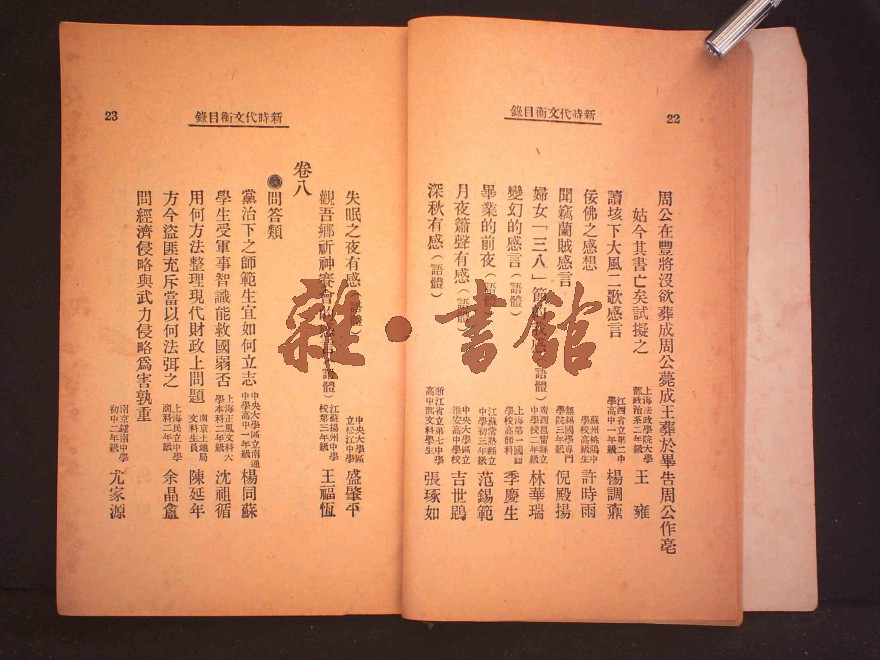 新時代文衡目錄
22
周公在豐將沒欲葬成周公薨成王葬於畢告周公作亳
姑今其書亡矣試擬之 上海法政學院大學部政治系二年級 王雍
讀垓下大風二歌感言 江西省立第二中學高中一年級 楊調鼐
佞佛之感想 蘇州桃塢中學校高級生 許時雨
聞竊蘭賊感言 無錫國學專門學院三年級 倪殿揚
婦女「三八」節的感(語體) 廣西邕甯縣立中學校二年級 林華瑞
變幻的感言(語體) 上海第一國語學校高師科 季慶生
畢業的前夜(語體) 江蘇常熟縣立中學初三年級 范錫範
月夜簫聲有感(語體) 中央大學區立淮安高中學校 吉世
深秋有感(語體) 浙江省立第七中學高中部文科學生 張琢如
新時代文衡目錄
23
失眠之夜有感(語體) 中央大學區立松江中學 盛肇平
觀吾鄉祈神賽會(語體) 江蘇揚州中學校第三年級 王福恆
卷八
問答類
黨治下之師範生宜如何立志 中央大學區立南通中學高中一年級 楊同蘇
學生受軍事智識能救國弱否 上海正風文科大學本科二年級 沈祖循
用何方法整理現代財政上問題 南京土地局文科生員 陳延年
方今盜匪充斥當以何法弭之 上海民立中學商科二年級 余晶盦
問經濟侵略與武力侵略爲害孰重 南京鍾南中學初中二年級 尤家源
雜・書館